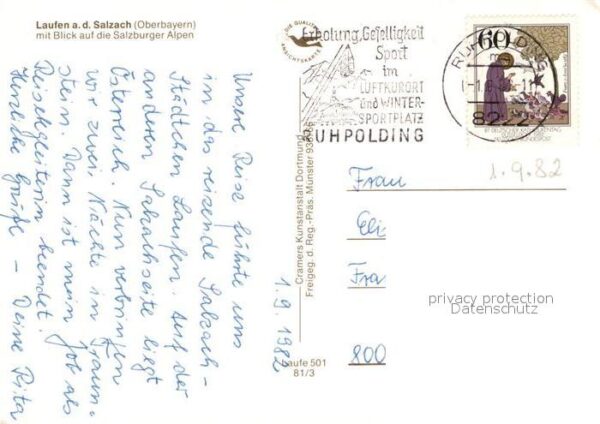 Laufen a. d. Salzach (Oberbayern)
mit Blick auf die Salzburger Alpen
Unsere Reise führte uns
in das reizende Salzach-
Städtchen Laufen. Auf der
anderen Salzachseite liegt
Österreich. Nun verbringen
wir zwei Nächte in Traun-
stein. Dann ist mein Job als
Reisebegleiterin beendet.
Herzliche Grüße – Deine Rita
1.9.1982
DIE QUALITÄTS
ANSICHTSKARTE
Cramers Kunstanstalt Dortmund
Freigeg. d. Reg.-Präs. Münster
Laufe 501
81/3
Erholung, Geselligkeit
Sport
im
LUFTKURORT
und WINTER-
SPORTPLATZ
RUHPOLDING
RUHPOLDING
8222
60
1.9.82
Frau
Eli
Fra
800
privacy protection
Datenschutz